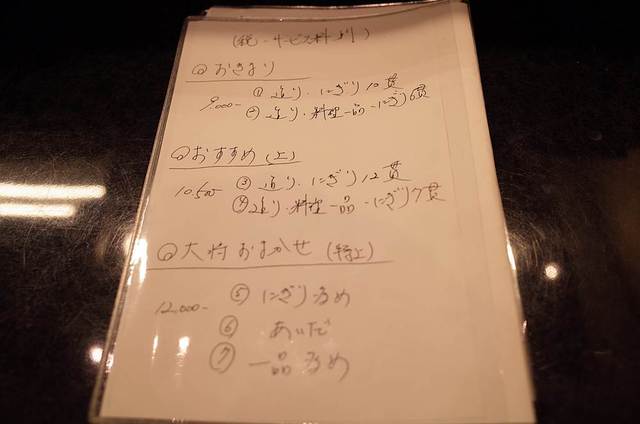 (税・サービス料別)
◎おきまり
① 造り・にぎり10貫
9.000-
② 造り・料理一品・にぎり6貫
◎おすすめ(上)
10.500 ③ 造り・にぎり12貫
④造り・料理一品・にぎり7貫
◎大将おまかせ(特上)
12.000- ⑤ にぎり多め
⑥ あいだ
⑦ 一品多め